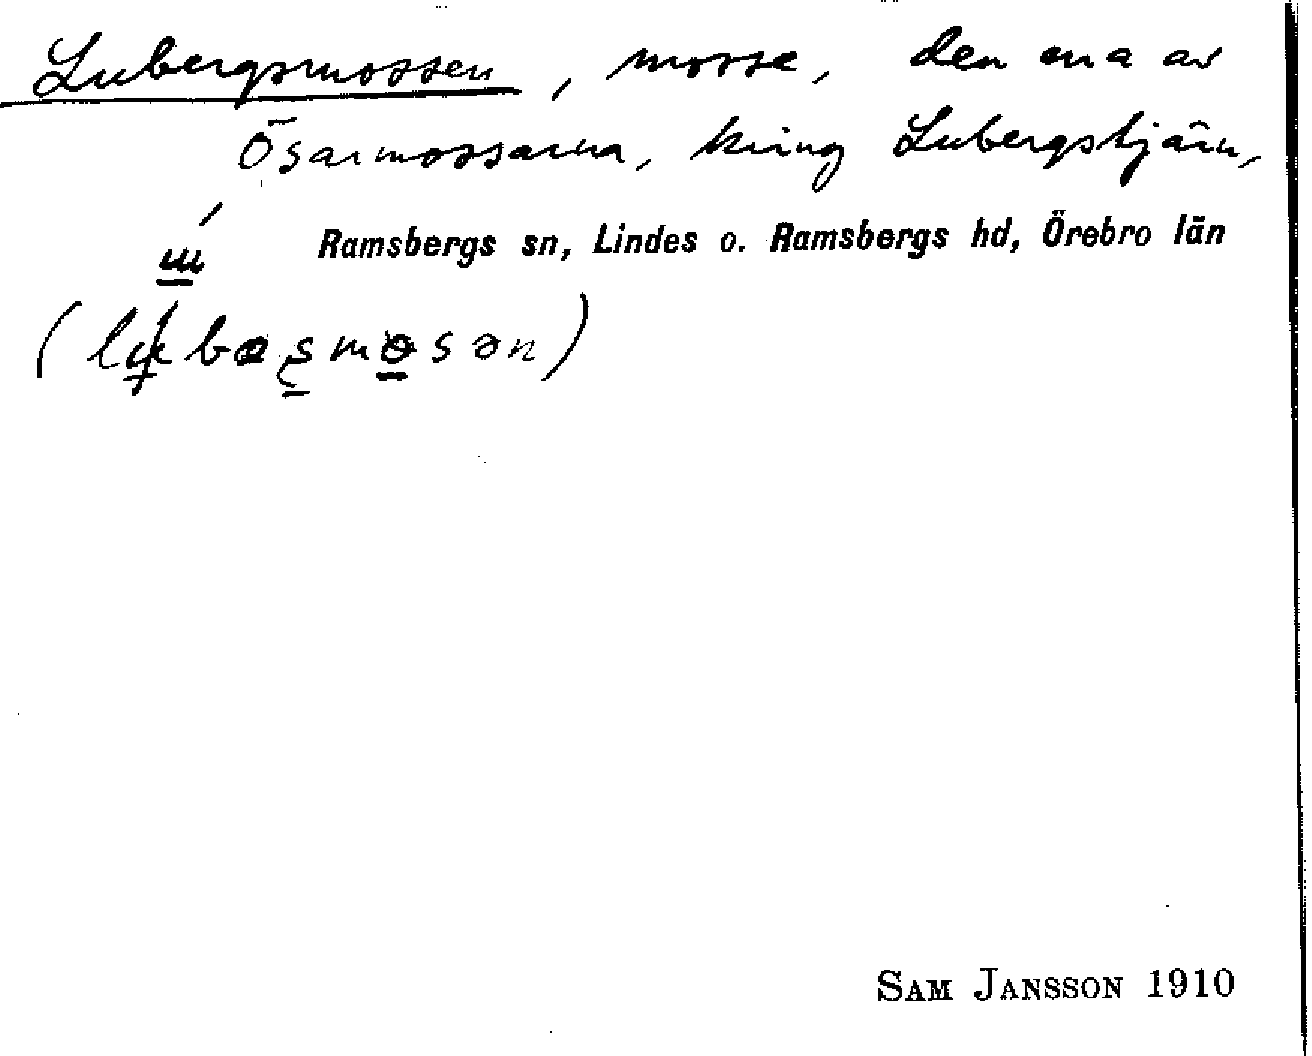 Lubergsmossen, mosse, den ena av
Ösarmossarna, kring Lubergstjärn,
Ramsbergs sn, Lindes o. Ramsbergs hd, Örebro län
SAM JANSSON 1910